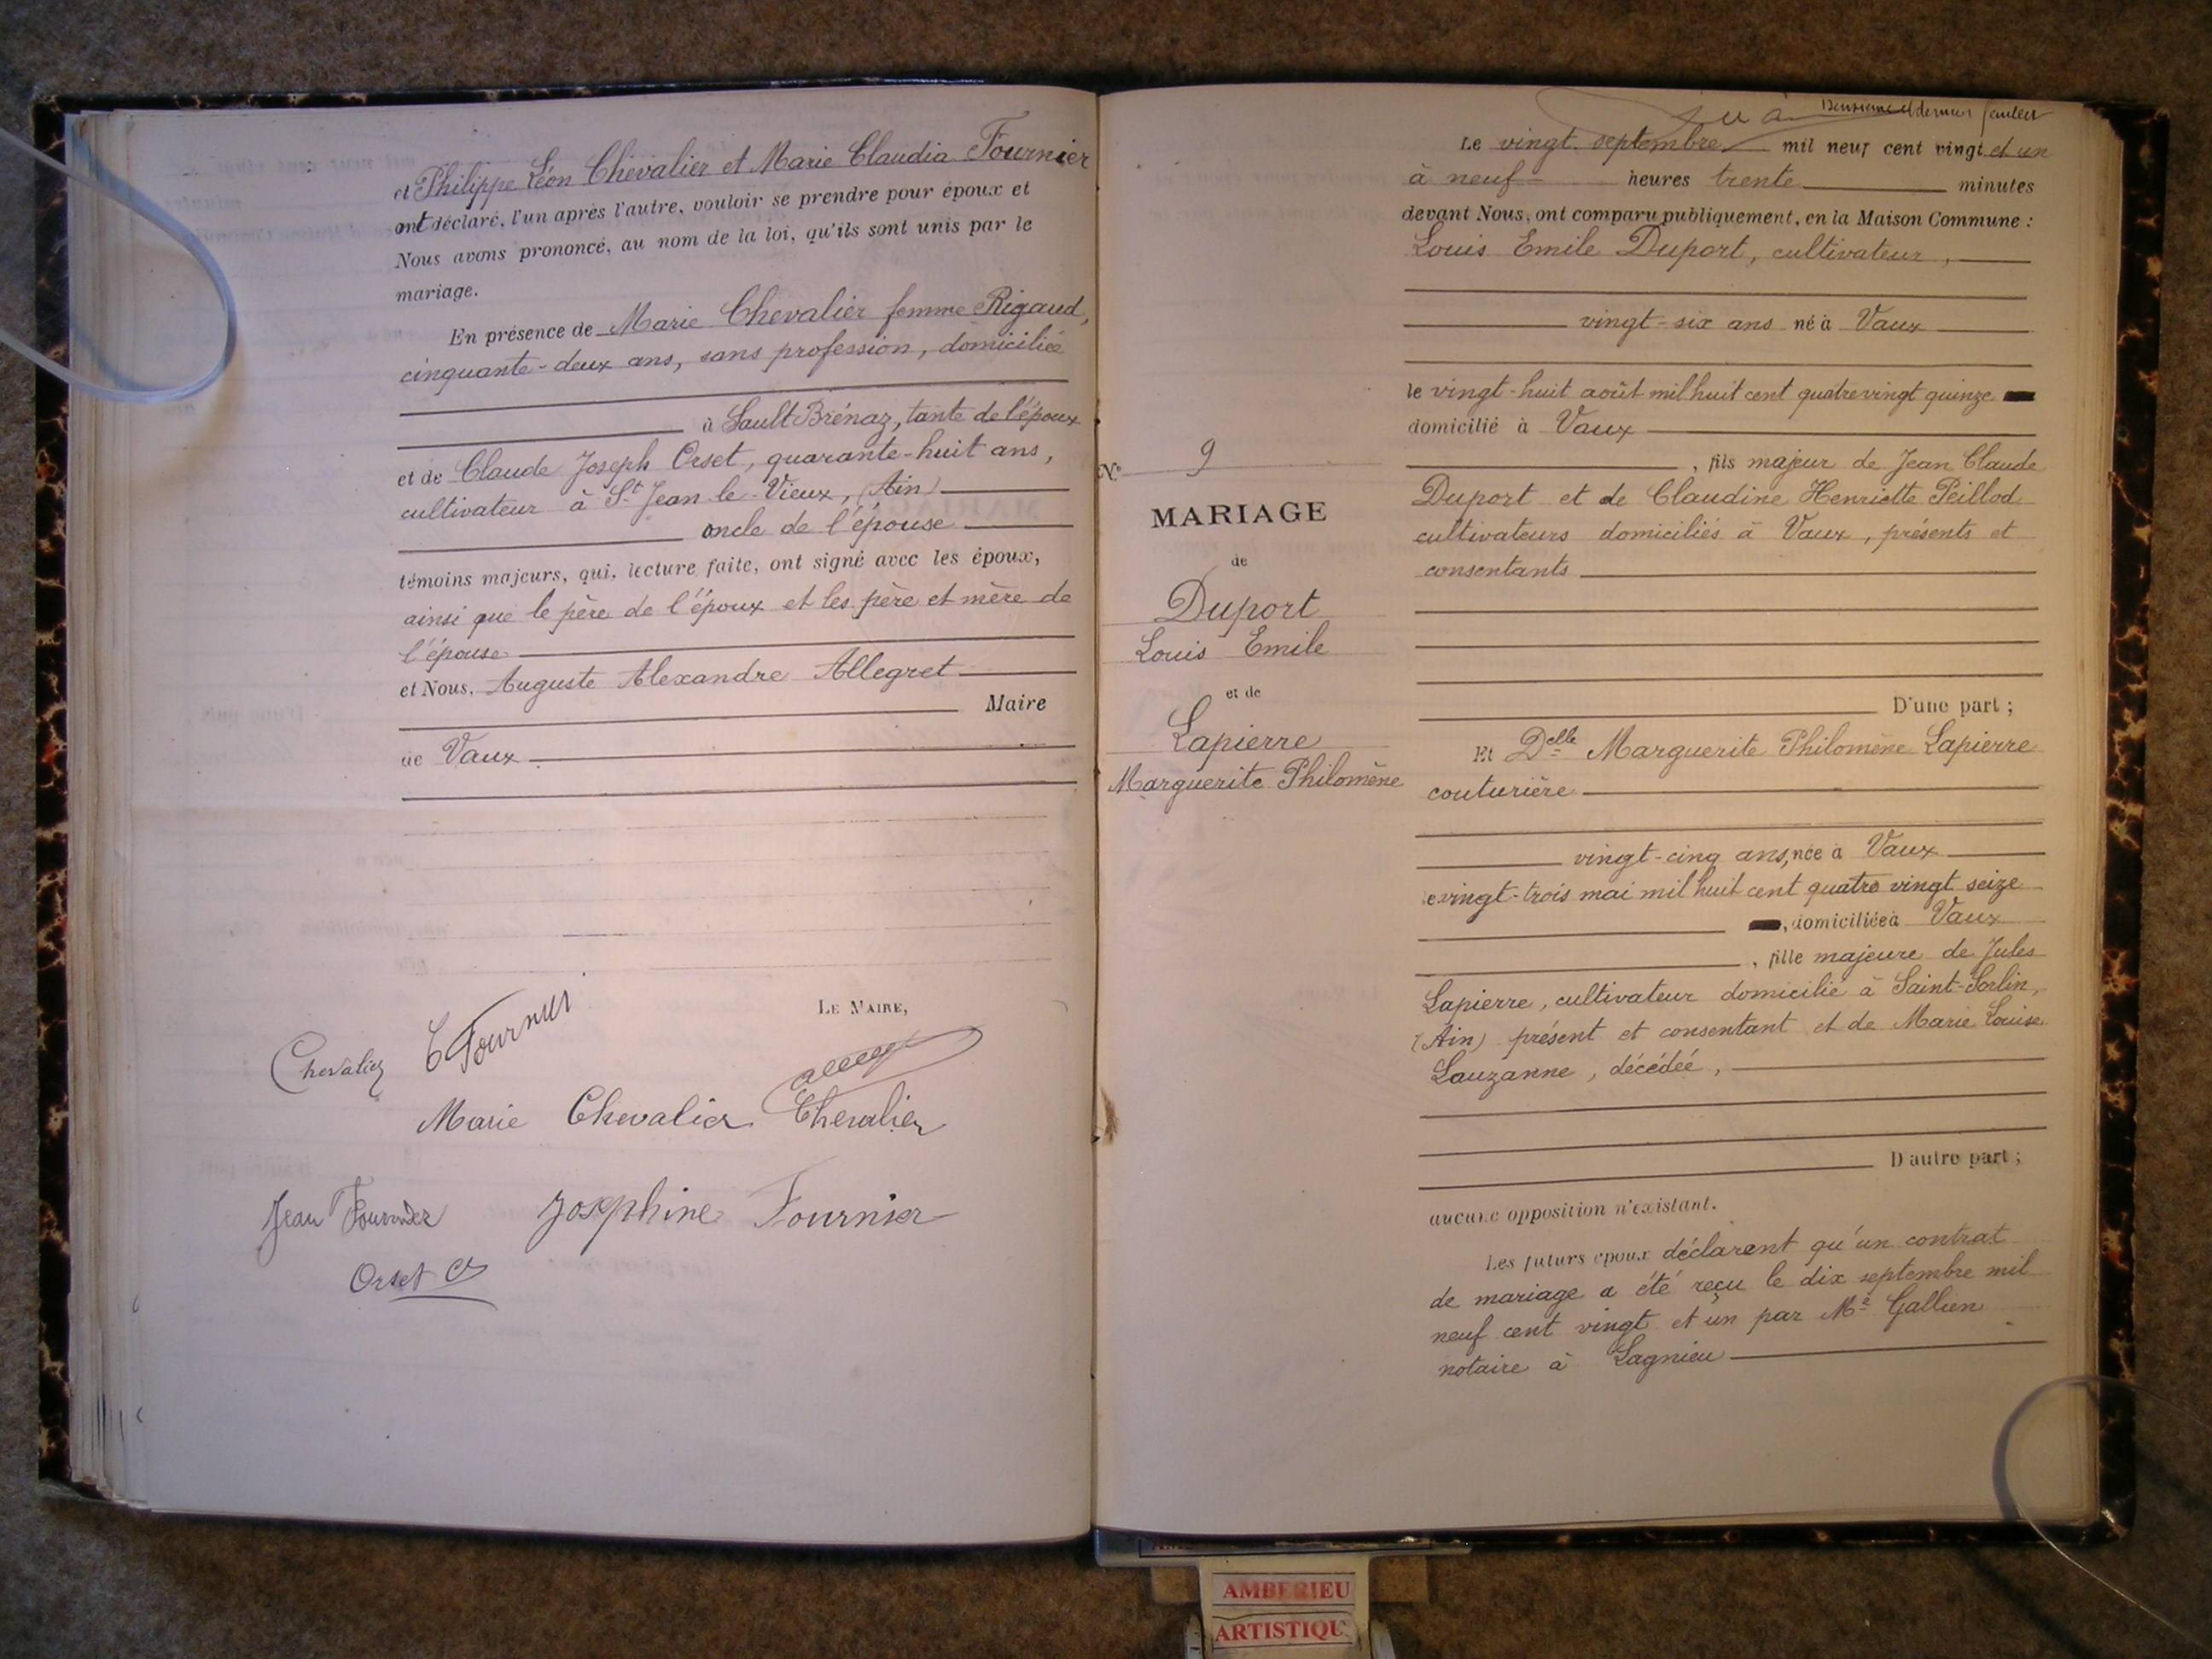 et Philippe Léon Chevalier et Marie Claudia Fournier
ont déclaré, l'un après l'autre, vouloir se prendre pour époux et
Nous avons prononcé, au nom de la loi, qu'ils sont unis par le
mariage.
En présence de Marie Chevalier femme Rigaud,
cinquante-deux ans, sans profession, domiciliée
à Sault Brénaz, tante de l'époux
et de Claude Joseph Orset, quarante-huit ans,
cultivateur à St Jean le Vieux, (Ain)
oncle de l'épouse
témoins majeurs, qui, lecture faite, ont signé avec les époux,
ainsi que le père de l'époux et les père et mère de
l'épouse
et Nous, Auguste Alexandre Allegret
Maire
de Vaux
LE MAIRE,
Chevalier C Fournier
Marie Chevalier Chevalier
Jean Fournier Josephine Fournier
Orset Cl
Deuxième et dernier feuillet
Le vingt septembre mil neuf cent vingt et un
à neuf heures trente minutes
devant Nous, ont comparu publiquement, en la Maison Commune :
Louis Emile Duport, cultivateur,
vingt-six ans né à Vaux
le vingt-huit août mil huit cent quatre vingt quinze
domicilié à Vaux
, fils majeur de Jean Claude
Duport et de Claudine Henriette Peillod
cultivateurs domiciliés à Vaux, présents et
consentants
D'une part ;
N° 9
MARIAGE
de
Duport
Louis Emile
et de
Lapierre
Marguerite Philomène
Et Delle Marguerite Philomène Lapierre
couturière
vingt-cinq ans, née à Vaux
le vingt-trois mai mil huit cent quatre vingt seize
, domiciliée à Vaux
, fille majeure de Jules
Lapierre, cultivateur domicilié à Saint-Sorlin,
(Ain) présent et consentant et de Marie Louise
Lauzanne, décédée,
D'autre part ;
aucune opposition n'existant.
Les futurs époux déclarent qu'un contrat
de mariage a été reçu le dix septembre mil
neuf cent vingt et un par Me Gallien
notaire à Lagnieu
AMBERIEU
ARTISTIQU